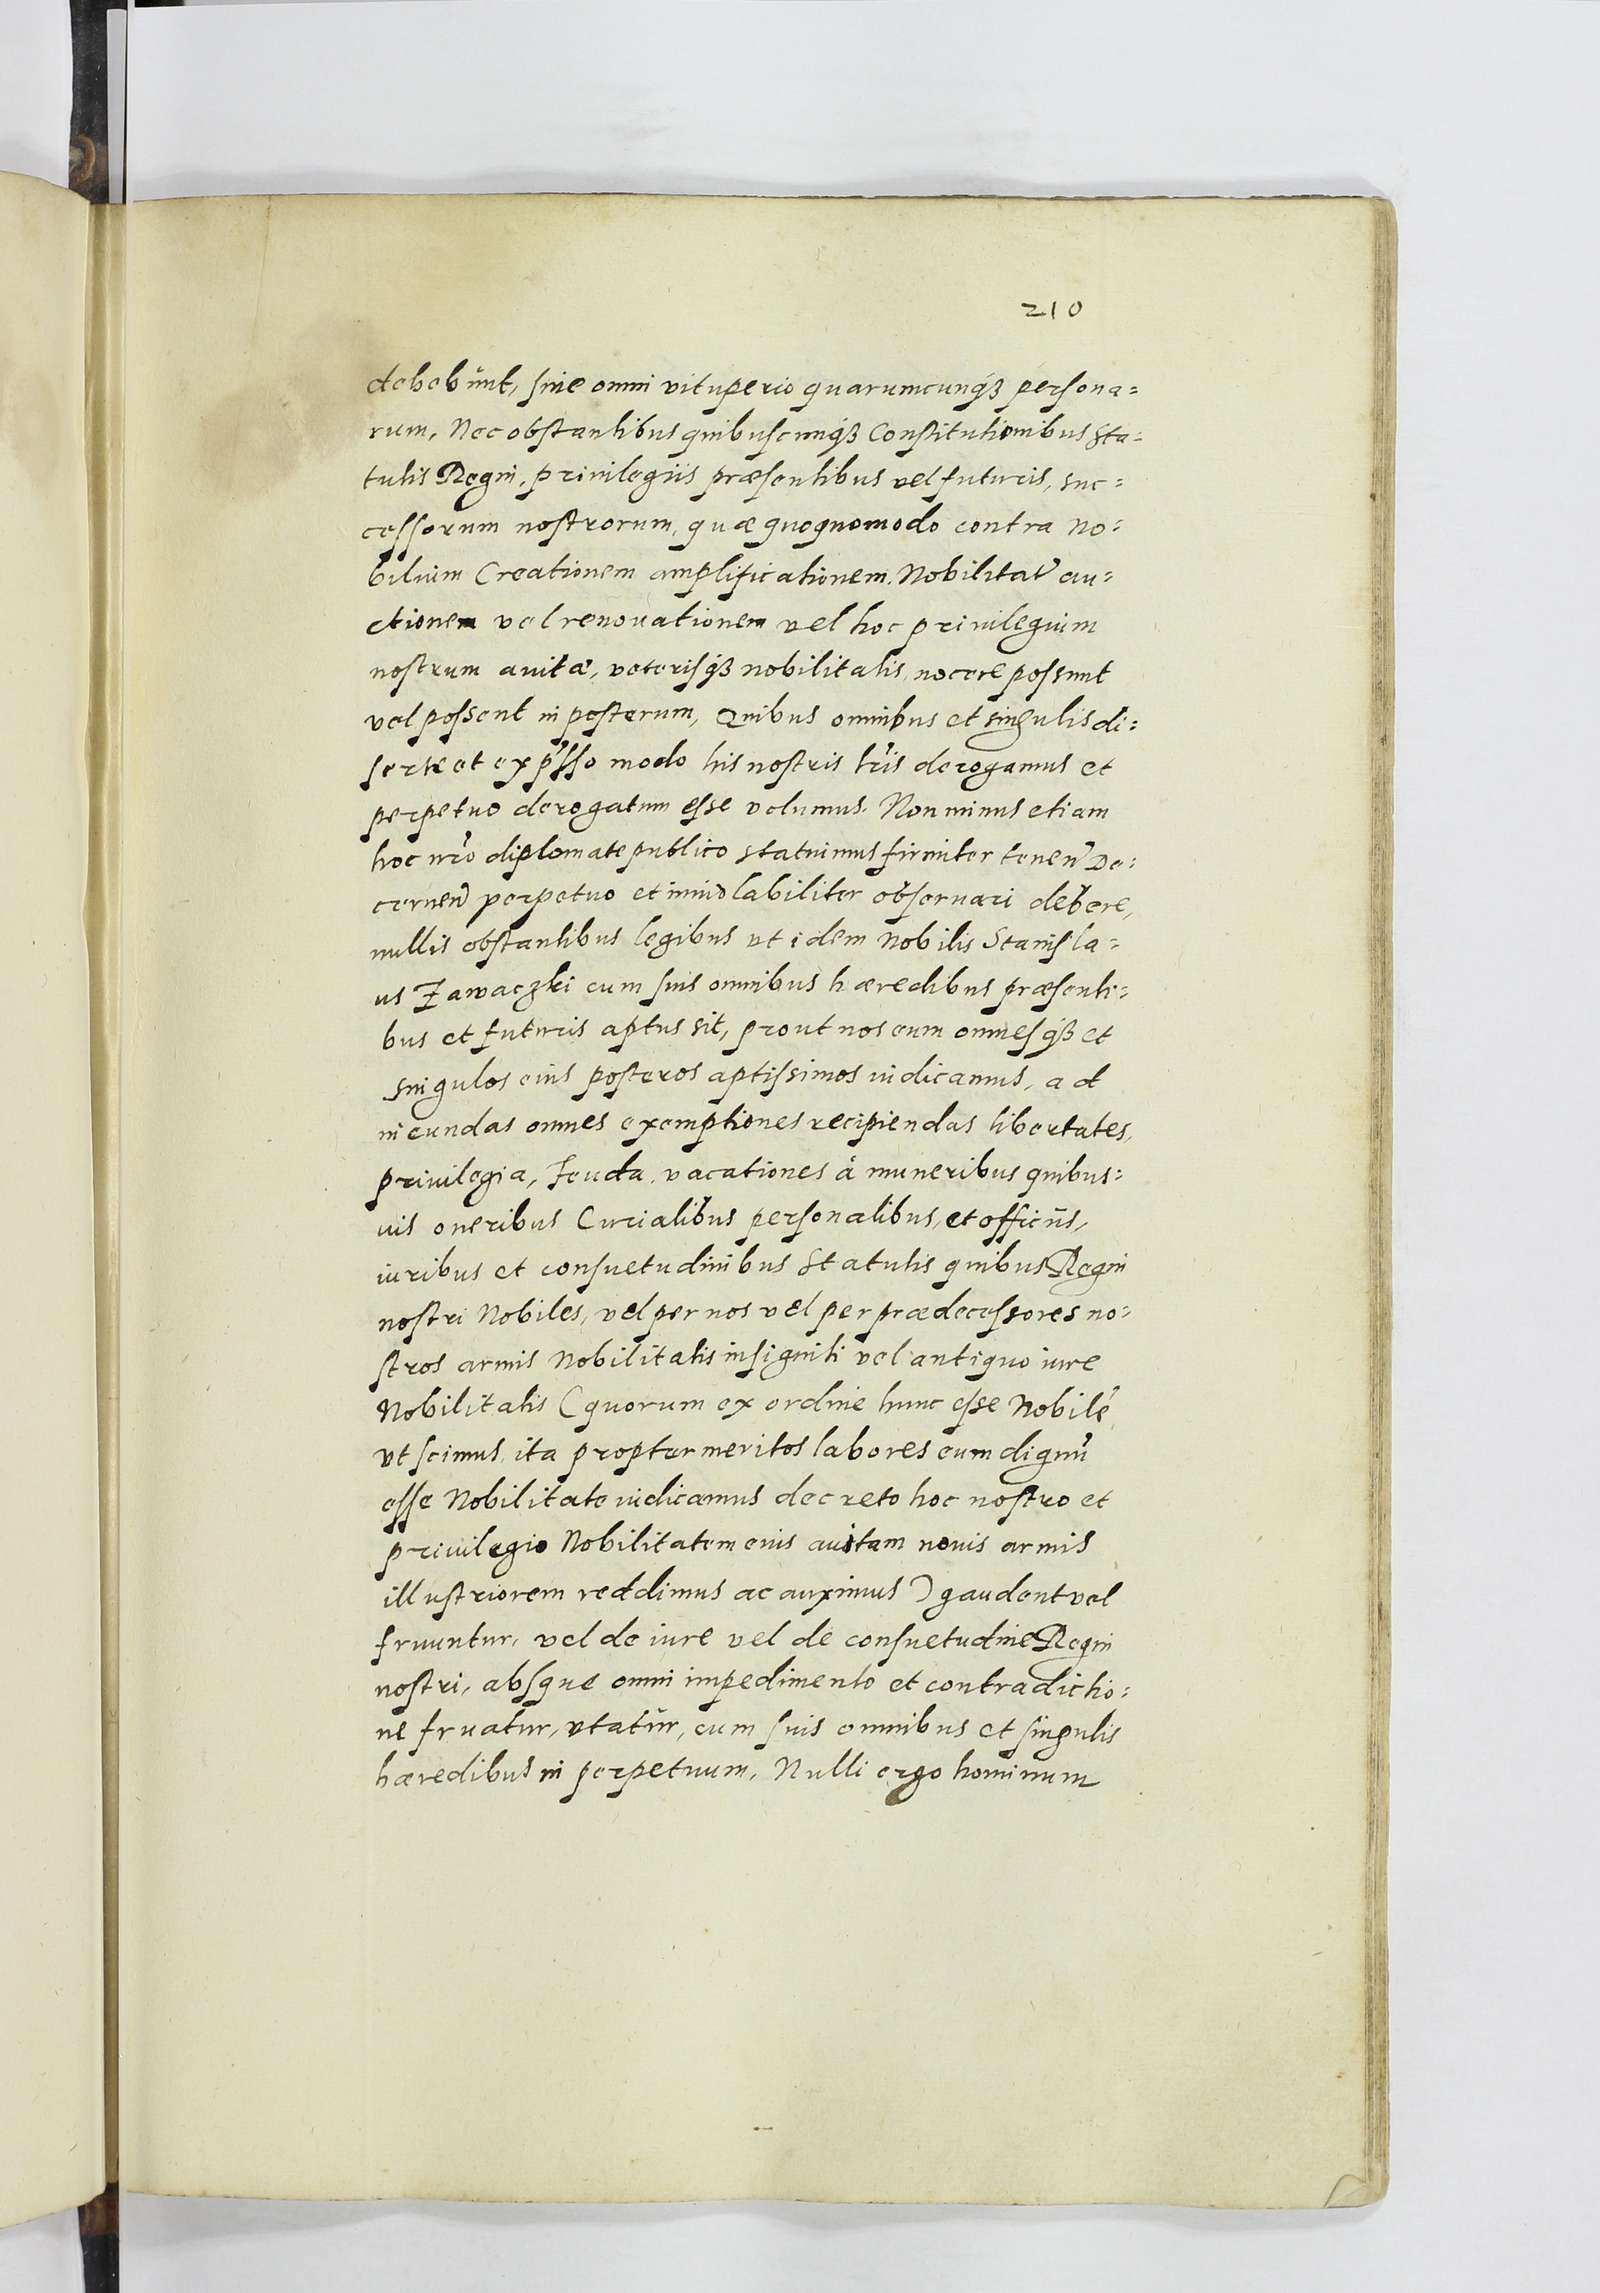 210
debebunt, sine omni vituperio quarumcunq3 persona=
rum, Nec obstantibus quibuscunq3 Constitutionibus Sta=
tutis Regni, priuilegijs præsentibus vel futuris, suc=
cessorum nostrorum, quæ quoquomodo contra no=
bilium Creationem amplificationem, Nobilitat̃ au=
ctionem vel renouationem vel hoc priuilegium
nostrum auitæ, veterisq3 nobilitatis, nocere possunt
vel possent in posterum, Quibus omnibus et singulis di=
serte et exp̃sso modo his nostris lr̃is derogamus et
perpetuo derogatum esse volumus. Non minus etiam
hoc nr̃o diplomate publico statuimus firmiter tenen̄ De=
cernen̄ perpetuo et inuiolabiliter obseruari debere,
nullis obstantibus legibus vt idem Nobilis Stanisla=
us Zawaczki cum suis omnibus hæredibus præsenti=
bus et futuris aptus sit, prout nos eum omnesq3 et
singulos eius posteros aptissimos iudicamus, ad
ineundas omnes exemptiones recipiendas libertates,
priuilegia, Feuda, vacationes à muneribus quibus=
uis oneribus Curialibus personalibus, et officijs,
iuribus et consuetudinibus Statutis quibus Regni
nostri Nobiles, vel per nos vel per prædecessores no=
stros armis Nobilitatis insigniti vel antiquo iure
Nobilitatis (quorum ex ordine hunc esse Nobilē
vt scimus, ita propter meritos labores eum dignū
esse Nobilitate iudicamus decreto hoc nostro et
priuilegio Nobilitatem eius auitam nouis armis
illustriorem reddimus ac auximus) gaudent vel
fruuntur, vel de iure vel de consuetudine Regni
nostri, absque omni impedimento et contradictio=
ne fruatur, vtatur, cum suis omnibus et singulis
hæredibus in perpetuum, Nulli ergo hominum